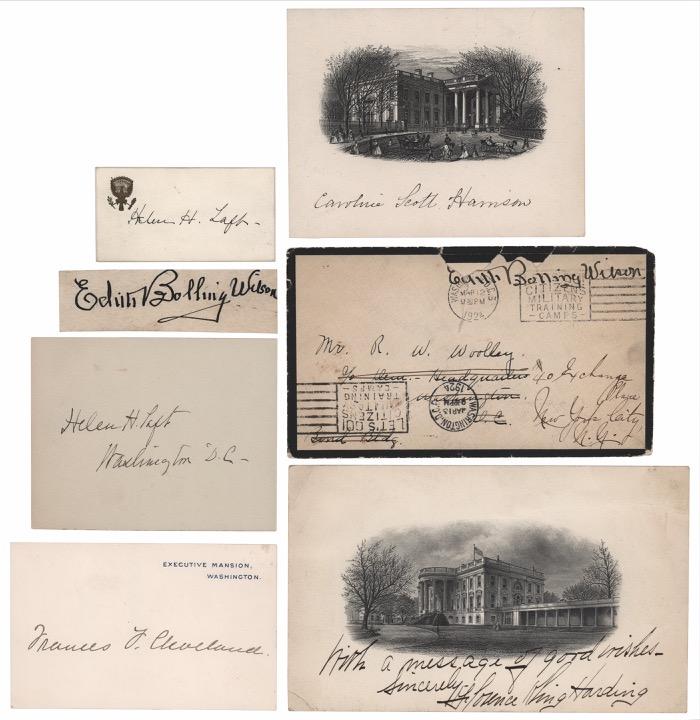 Caroline Scott Harrison
Helen H. Taft -
Edith Bolling Wilson
Edith Bolling Wilson
WASHINGTON
MAR 12
1924
CITIZENS
MILITARY
TRAINING
CAMPS
Mr. R. W. Woolley.
c/o Dem. Headquarters
Washington
D.C.
Bond Bldg.
40 Exchange
Place
New York City
N.Y.
LET'S GO!
CITIZENS
MILITARY
TRAINING
CAMPS
WASHINGTON, D.C.
MAR 13
1924
Helen H. Taft
Washington D.C. -
EXECUTIVE MANSION,
WASHINGTON.
Frances F. Cleveland.
With a message of good wishes -
Sincerely
Florence Kling Harding